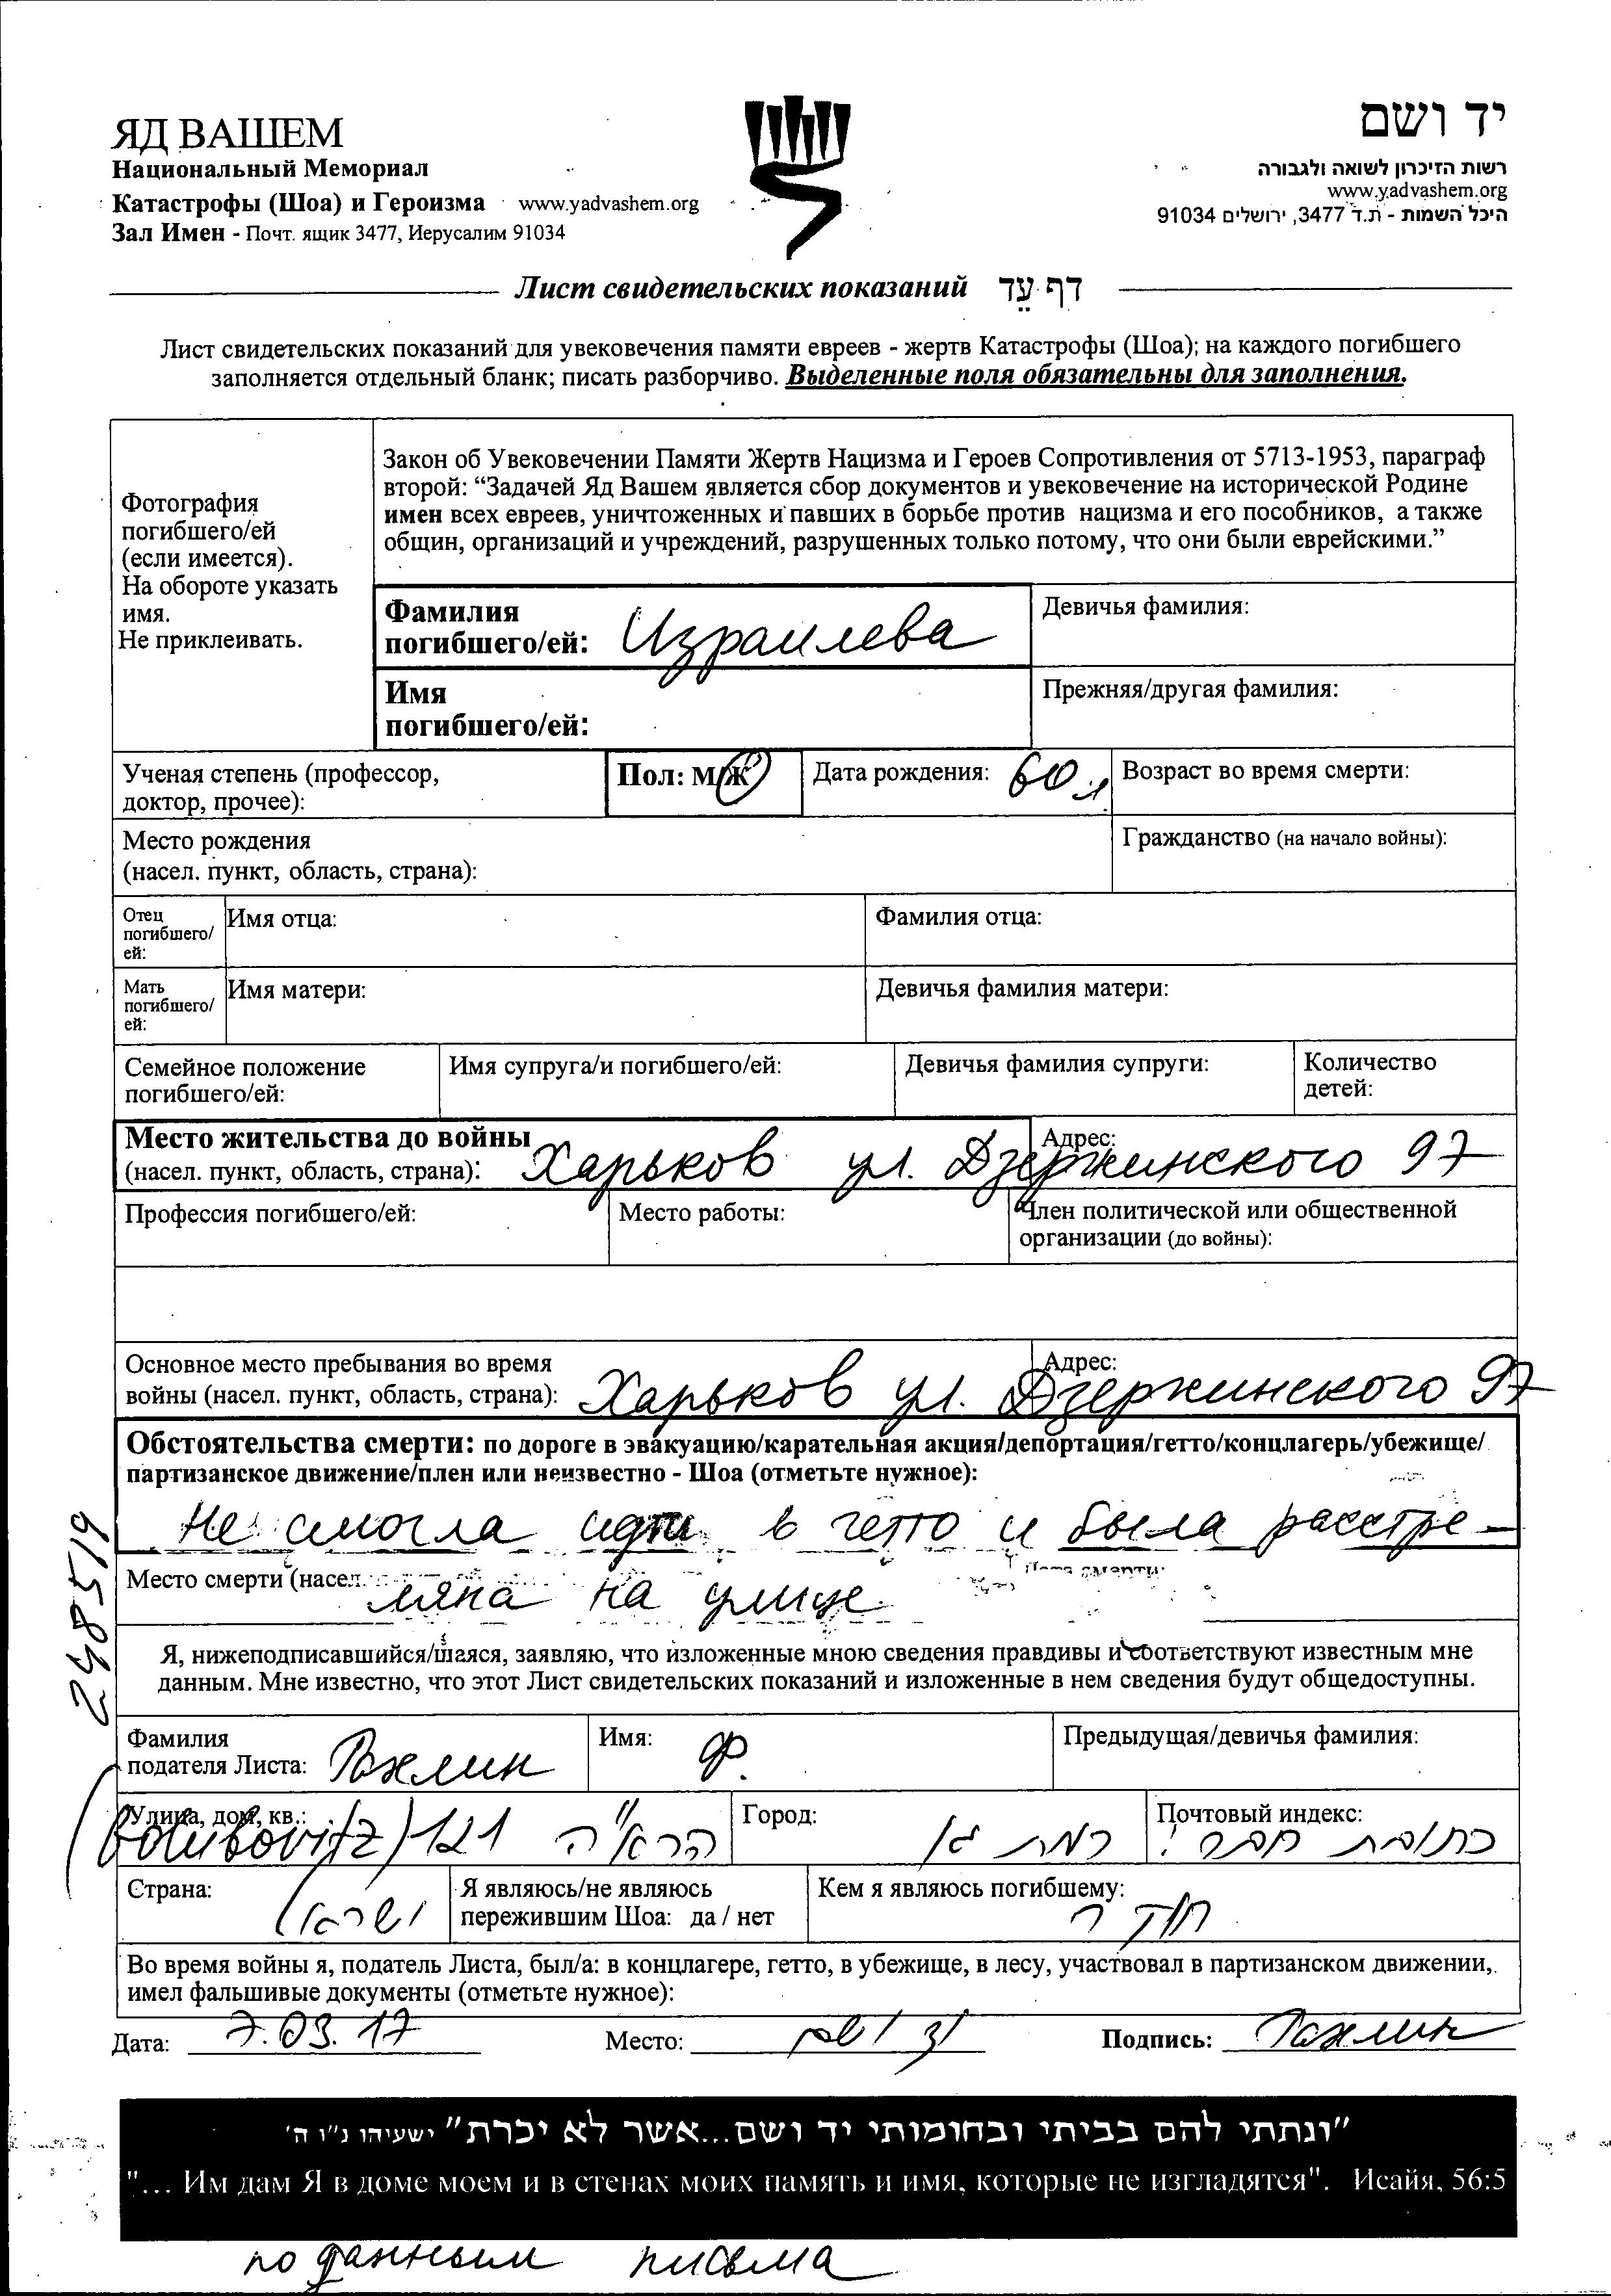 ЯД ВАШЕМ
Национальный Мемориал
Катастрофы (Шоа) и Героизма www.yadvashem.org
Зал Имен - Почт. ящик 3477, Иерусалим 91034
יד ושם
רשות הזיכרון לשואה ולגבורה
www.yadvashem.org
היכל השמות - ת.ד 3477, ירושלים 91034
Лист свидетельских показаний דף עֵד
Лист свидетельских показаний для увековечения памяти евреев - жертв Катастрофы (Шоа); на каждого погибшего
заполняется отдельный бланк; писать разборчиво. Выделенные поля обязательны для заполнения.
Фотография
погибшего/ей
(если имеется).
На обороте указать
имя.
Не приклеивать.
Закон об Увековечении Памяти Жертв Нацизма и Героев Сопротивления от 5713-1953, параграф
второй: “Задачей Яд Вашем является сбор документов и увековечение на исторической Родине
имен всех евреев, уничтоженных и павших в борьбе против нацизма и его пособников, а также
общин, организаций и учреждений, разрушенных только потому, что они были еврейскими.”
Фамилия
погибшего/ей: Израилева
Девичья фамилия:
Имя
погибшего/ей:
Прежняя/другая фамилия:
Ученая степень (профессор,
доктор, прочее):
Пол: М/Ж
Дата рождения: 60 л
Возраст во время смерти:
Место рождения
(насел. пункт, область, страна):
Гражданство (на начало войны):
Отец
погибшего/
ей:
Имя отца:
Фамилия отца:
Мать
погибшего/
ей:
Имя матери:
Девичья фамилия матери:
Семейное положение
погибшего/ей:
Имя супруга/и погибшего/ей:
Девичья фамилия супруги:
Количество
детей:
Место жительства до войны
(насел. пункт, область, страна): Харьков ул. Дзержинского 97
Адрес:
Профессия погибшего/ей:
Место работы:
Член политической или общественной
организации (до войны):
Основное место пребывания во время
войны (насел. пункт, область, страна): Харьков ул. Дзержинского 97
Адрес:
Обстоятельства смерти: по дороге в эвакуацию/карательная акция/депортация/гетто/концлагерь/убежище/
партизанское движение/плен или неизвестно - Шоа (отметьте нужное):
Не смогла идти в гетто и была расстре-
Место смерти (насел. ляна на улице
Дата смерти:
248519
Я, нижеподписавшийся/шаяся, заявляю, что изложенные мною сведения правдивы и соответствуют известным мне
данным. Мне известно, что этот Лист свидетельских показаний и изложенные в нем сведения будут общедоступны.
Фамилия
подателя Листа: Рахлин
Имя: Ф.
Предыдущая/девичья фамилия:
Улица, дом, кв.:
(Golubovitz) 121 הרא"ה
Город: רמת גן
Почтовый индекс:
כתובת חברה!
Страна: ישראל
Я являюсь/не являюсь
пережившим Шоа: да / нет
Кем я являюсь погибшему:
Во время войны я, податель Листа, был/а: в концлагере, гетто, в убежище, в лесу, участвовал в партизанском движении,
имел фальшивые документы (отметьте нужное):
Дата: 7.03.17 Место: יד ושם Подпись: Рахлин
"ונתתי להם בביתי ובחומותי יד ושם...אשר לא יכרת" ישעיהו נ"ו ה'
"... Им дам Я в доме моем и в стенах моих память и имя, которые не изгладятся". Исайя, 56:5
по данным письма